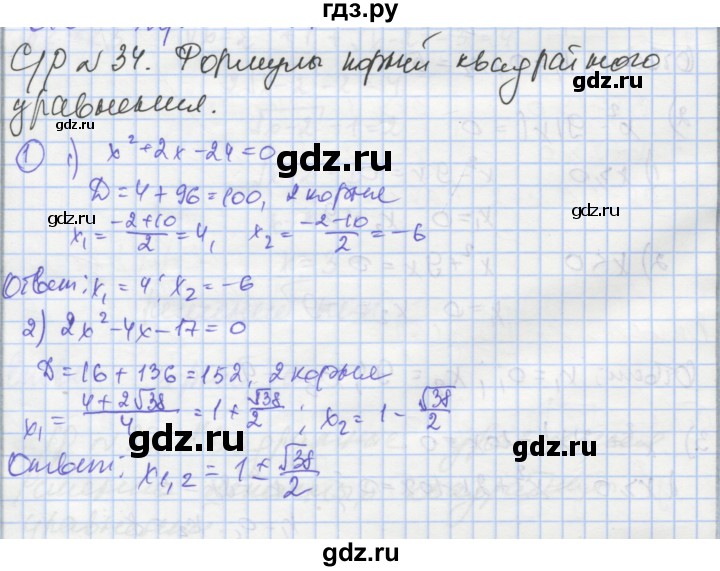 гдз.ру
С/Р №34. Формулы корней квадратного
уравнения.
gdz.ru
gdz.ru
1 1) x² + 2x - 24 = 0
gdz.ru
D = 4 + 96 = 100, 2 корня
gdz.ru
gdz.ru
x₁ = (-2+10)/2 = 4, x₂ = (-2-10)/2 = -6
Ответ: x₁ = 4; x₂ = -6
gdz.ru
2) 2x² - 4x - 17 = 0
gdz.ru
D = 16 + 136 = 152, 2 корня
gdz.ru
x₁ = (4+2√38)/4 = 1 + √38/2; x₂ = 1 - √38/2
gdz.ru
Ответ: x₁,₂ = 1 ± √38/2
gdz.ru
gdz.ru
gdz.ru